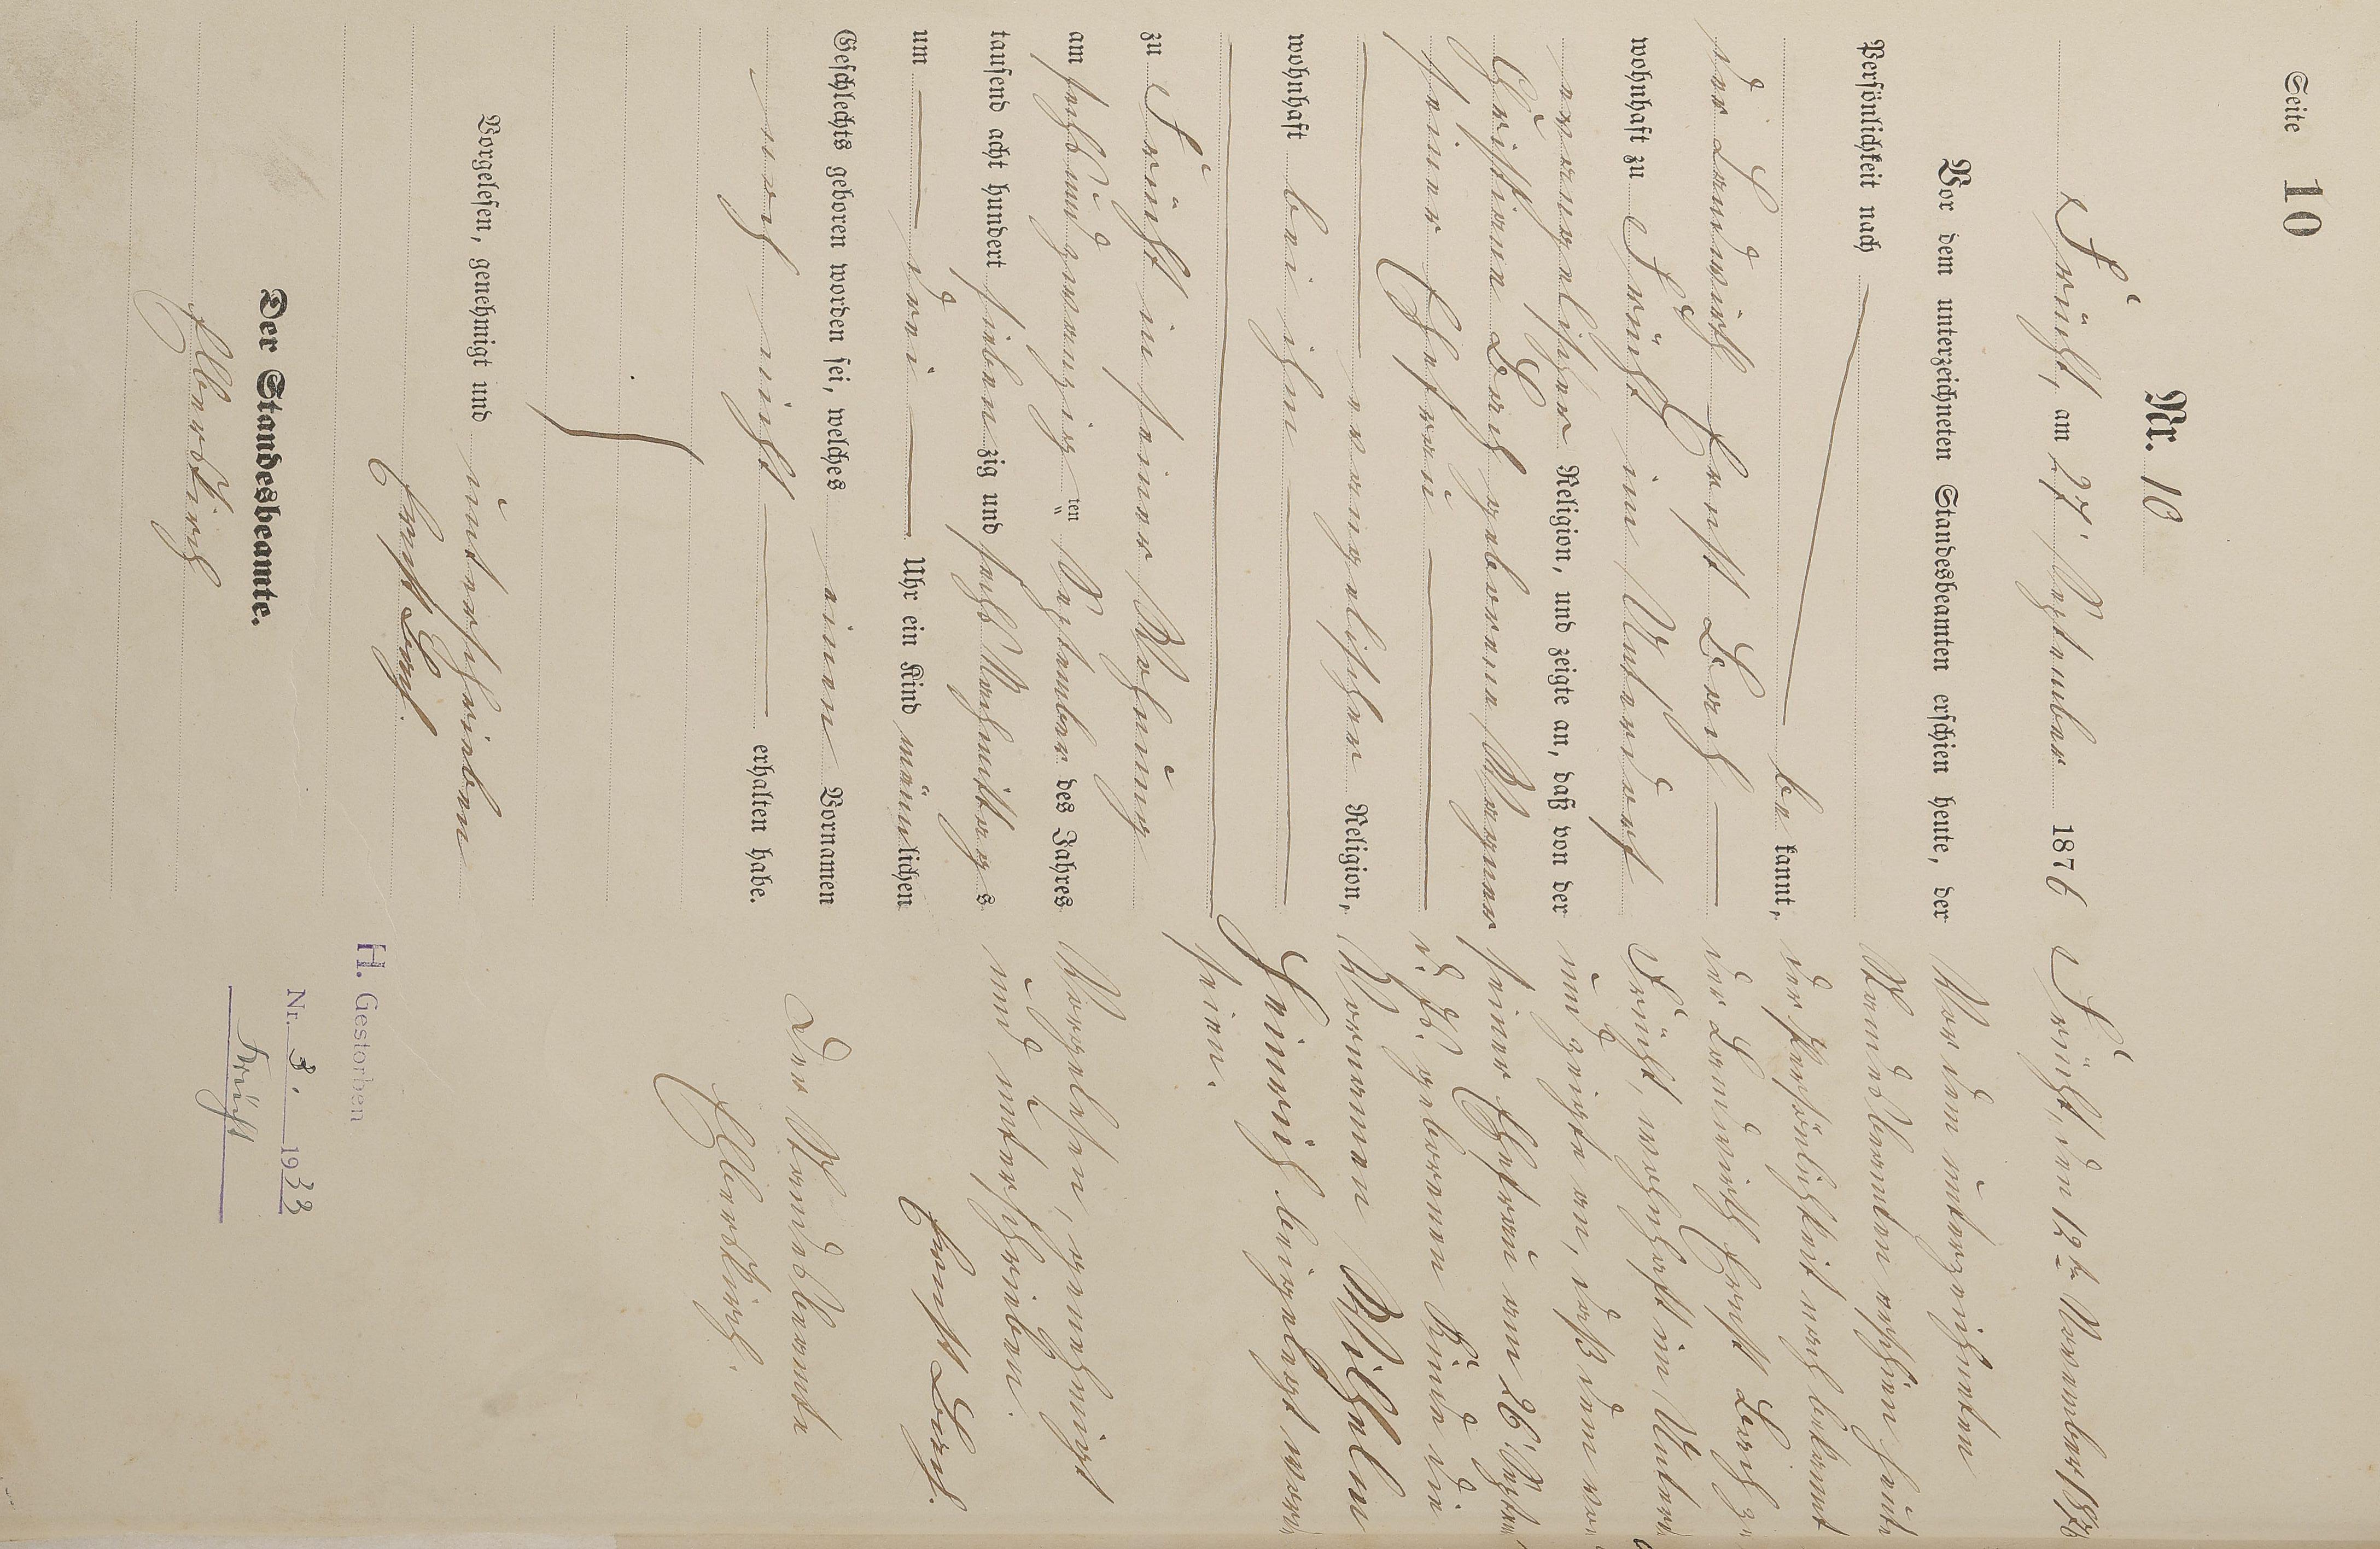 Seite 10
Nr. 10
Frücht, am 27. September 1876
Vor dem unterzeichneten Standesbeamten erschien heute, der
Persönlichkeit nach
bekannt,
der Landwirth Ernst Lorch
wohnhaft zu Frücht im Unterdorf
evangelischer Religion, und zeigte an, daß von der
Christiane Lorch geborene Wagner
seiner Ehefrau
evangelischer Religion,
wohnhaft bei ihm
zu Frücht in seiner Wohnung
am sechsundzwanzigsten September des Jahres
tausend acht hundert siebenzig und sechs Nachmittags
um drei Uhr ein Kind männlichen
Geschlechts geboren worden sei, welches einen Vornamen
noch nicht erhalten habe.
Vorgelesen, genehmigt und unterschrieben
Ernst Lorch.
Der Standesbeamte.
Frücht, den 12ten November 187
Vor dem unterzeichneten
Standesbeamten erschien heute
der Persönlichkeit nach bekannt
der Landwirth Ernst Lorch z
Frücht, wohnhaft im Unterd
und zeigte an, daß dem vo
seiner Ehefrau am 26. Septem
d. Js. geborenen Kinde die
Vornamen Wilhelm
Heinrich beigelegt word
seien.
Vorgelesen, genehmigt
und unterschrieben.
Ernst Lorch.
Der Standesbeamte
H. Gestorben
Nr. 3. 1933
Frücht